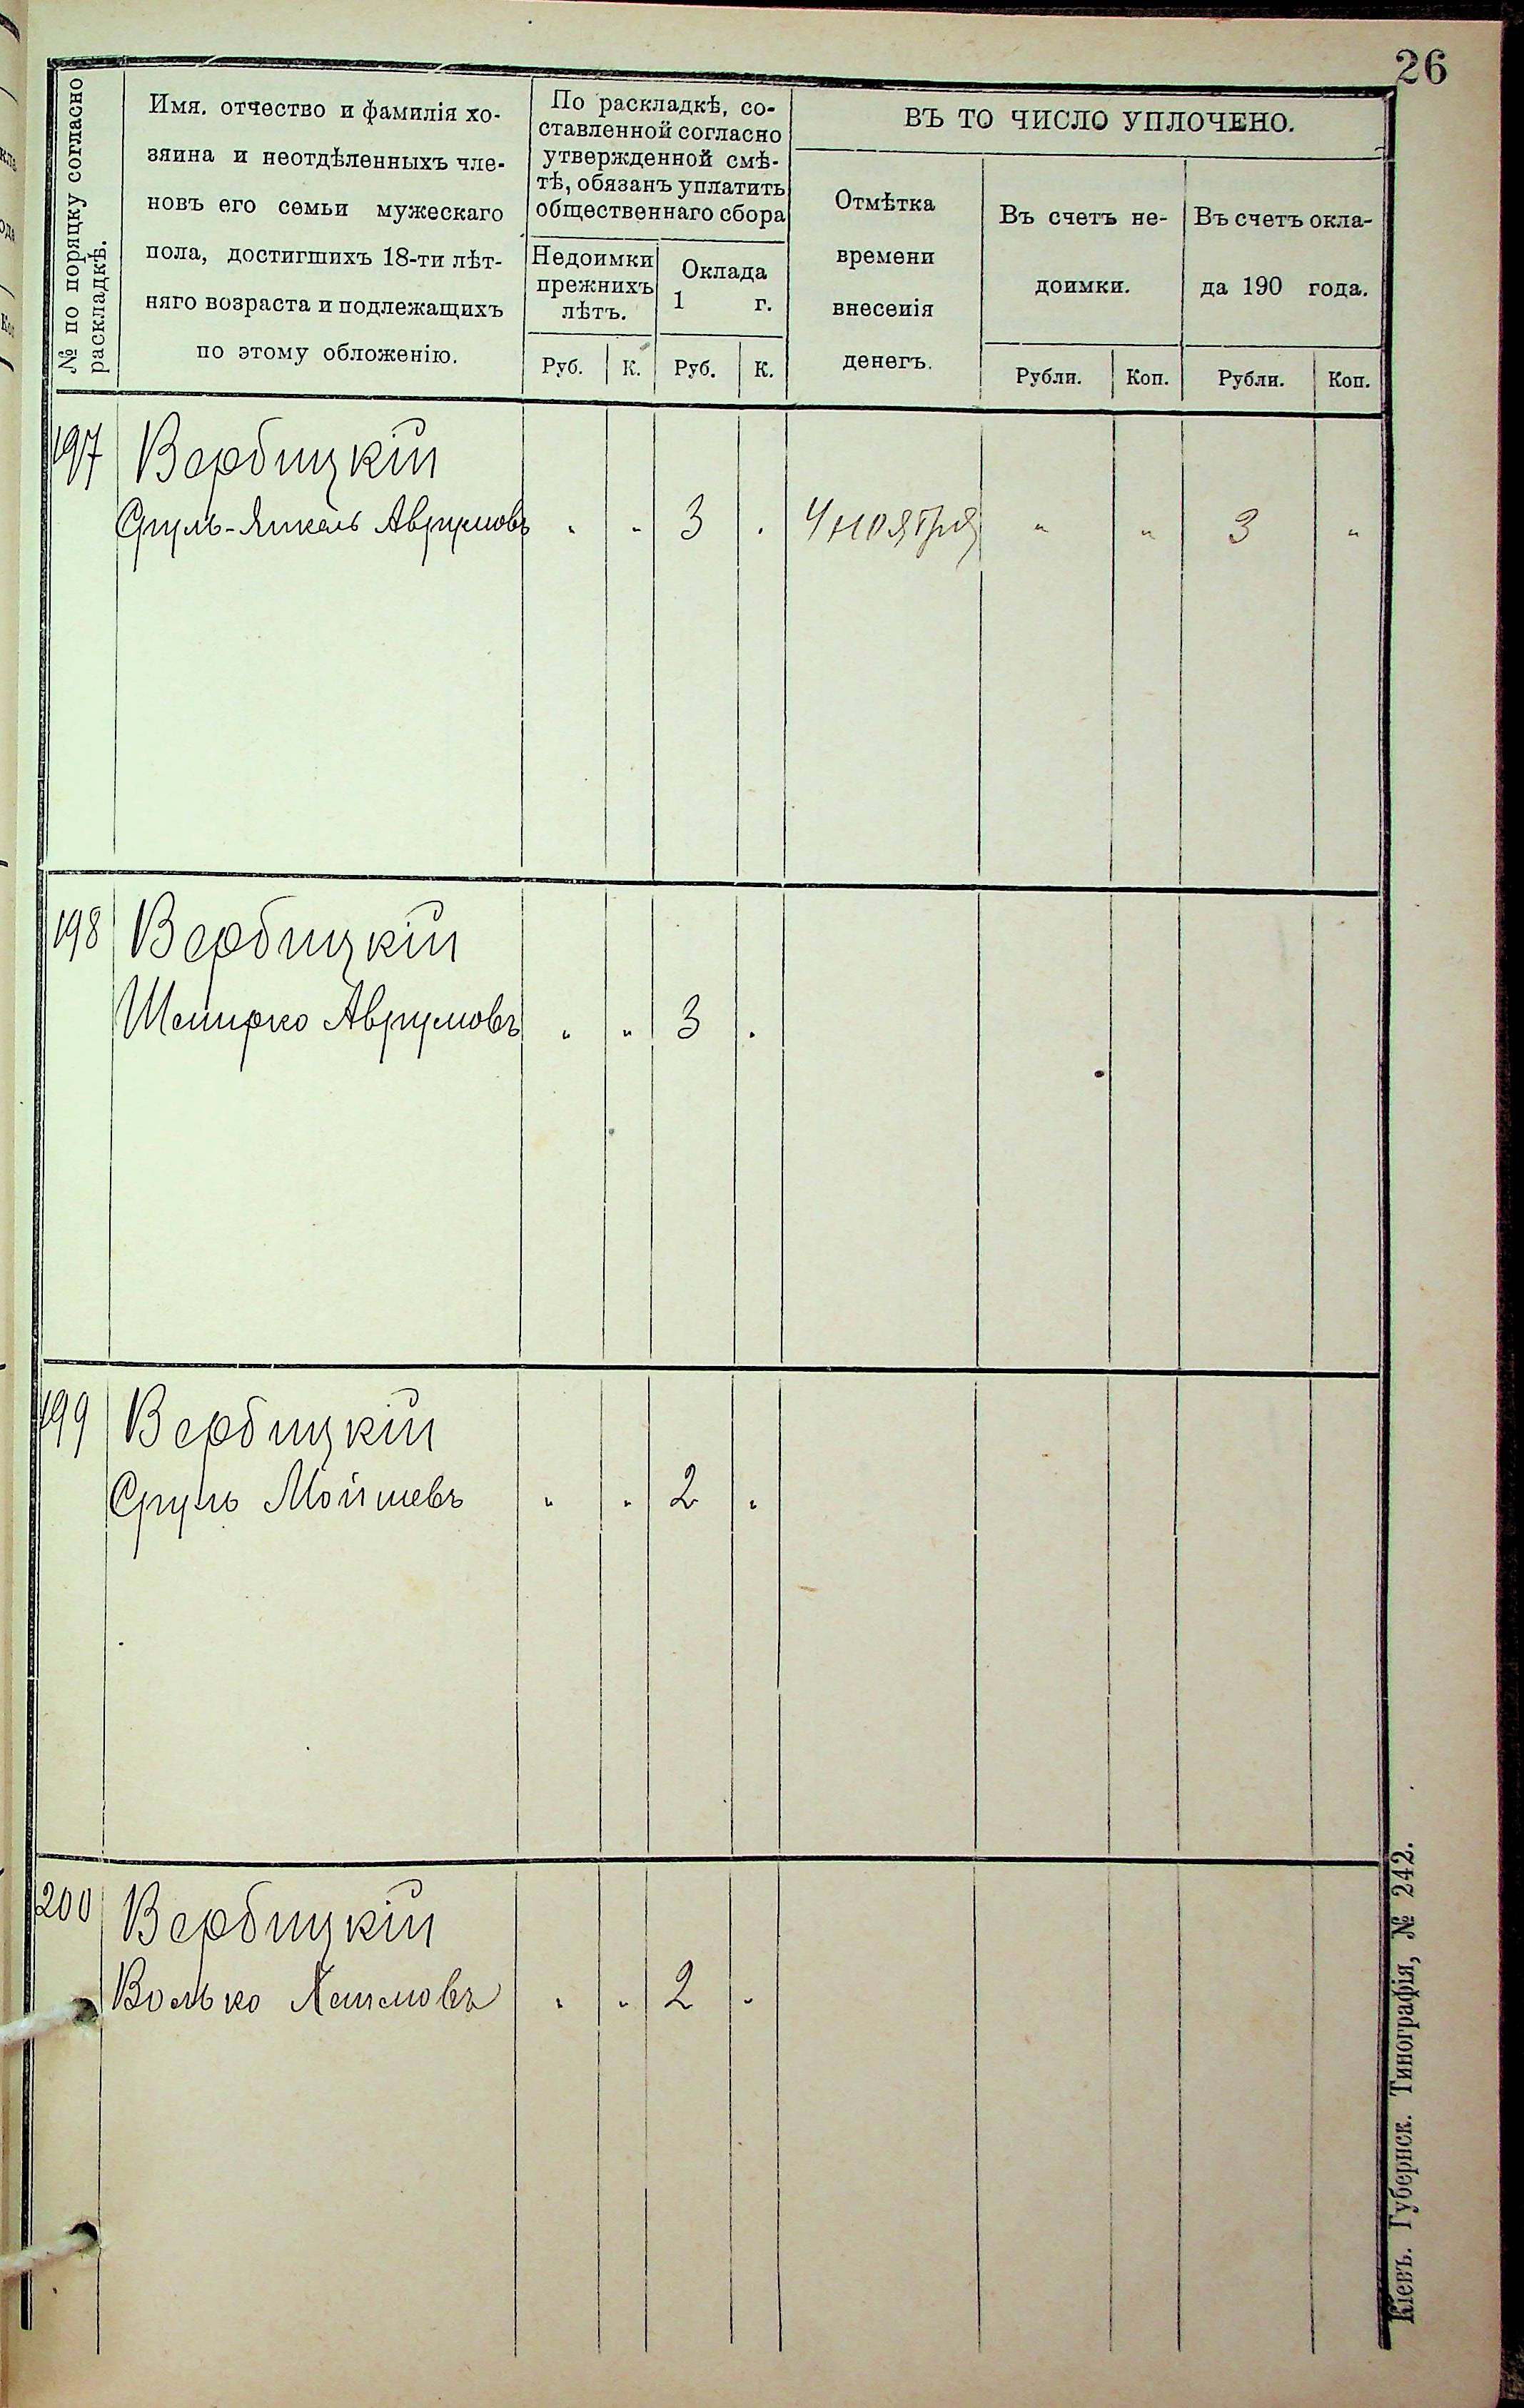 26
№ по порядку согласно
раскладкѣ.
Имя, отчество и фамилія хо-
зяина и неотдѣленныхъ чле-
новъ его семьи мужескаго
пола, достигшихъ 18-ти лѣт-
няго возраста и подлежащихъ
по этому обложенію.
По раскладкѣ, со-
ставленной согласно
утвержденной смѣ-
тѣ, обязанъ уплатить
общественнаго сбора
Недоимки
прежнихъ
лѣтъ.
Руб. К.
Оклада
1 г.
Руб. К.
ВЪ ТО ЧИСЛО УПЛОЧЕНО.
Отмѣтка
времени
внесенія
денегъ.
Въ счетъ не-
доимки.
Рубли. Коп.
Въ счетъ окла-
да 190 года.
Рубли. Коп.
197 Вербицкій
Сруль-Янкель Аврумовъ " " 3 " 4 ноября " " 3 "
198 Вербицкій
Шмирко Аврумовъ " " 3 "
199 Вербицкій
Сруль Мойшевъ " " 2 "
200 Вербицкій
Волько Хаимовъ " " 2 "
Кіевъ. Губернск. Типографія, № 242.